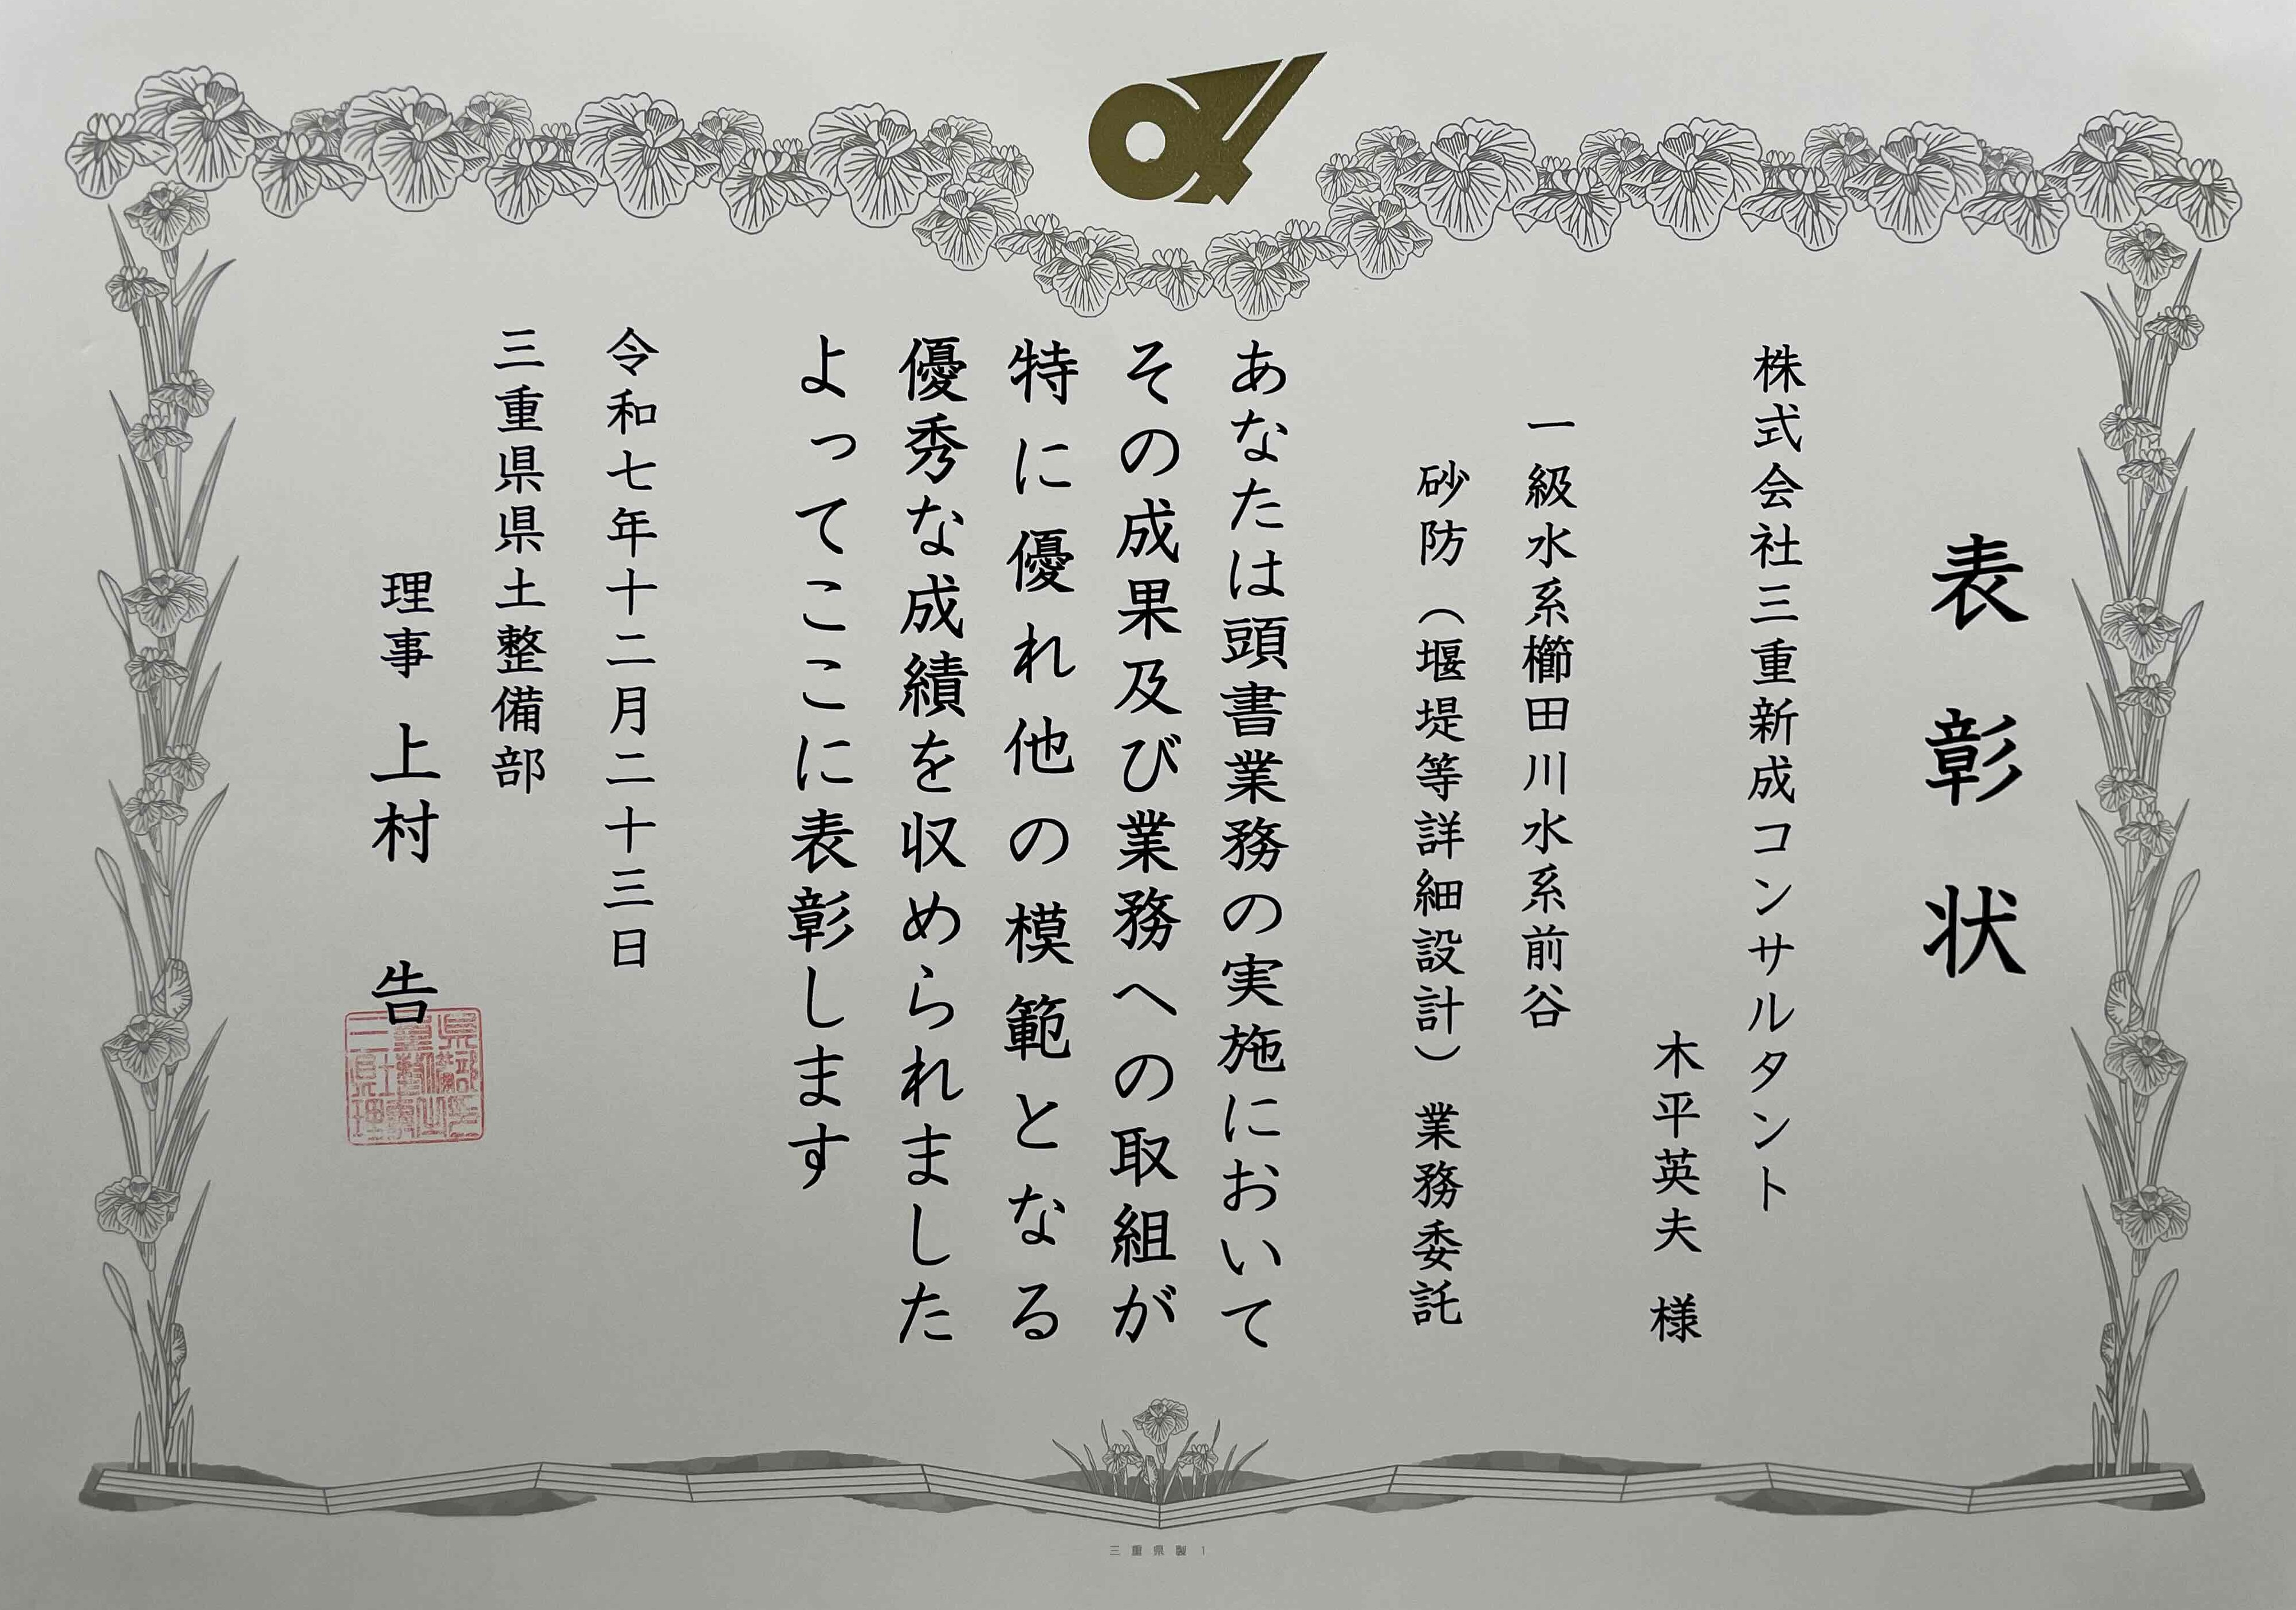 表彰状
株式会社三重新成コンサルタント
木平英夫 様
一級水系櫛田川水系前谷
砂防（堰堤等詳細設計）業務委託
あなたは頭書業務の実施において
その成果及び業務への取組が
特に優れ他の模範となる
優秀な成績を収められました
よってここに表彰します
令和七年十二月二十三日
三重県県土整備部
理事 上村 告
三重県製 1